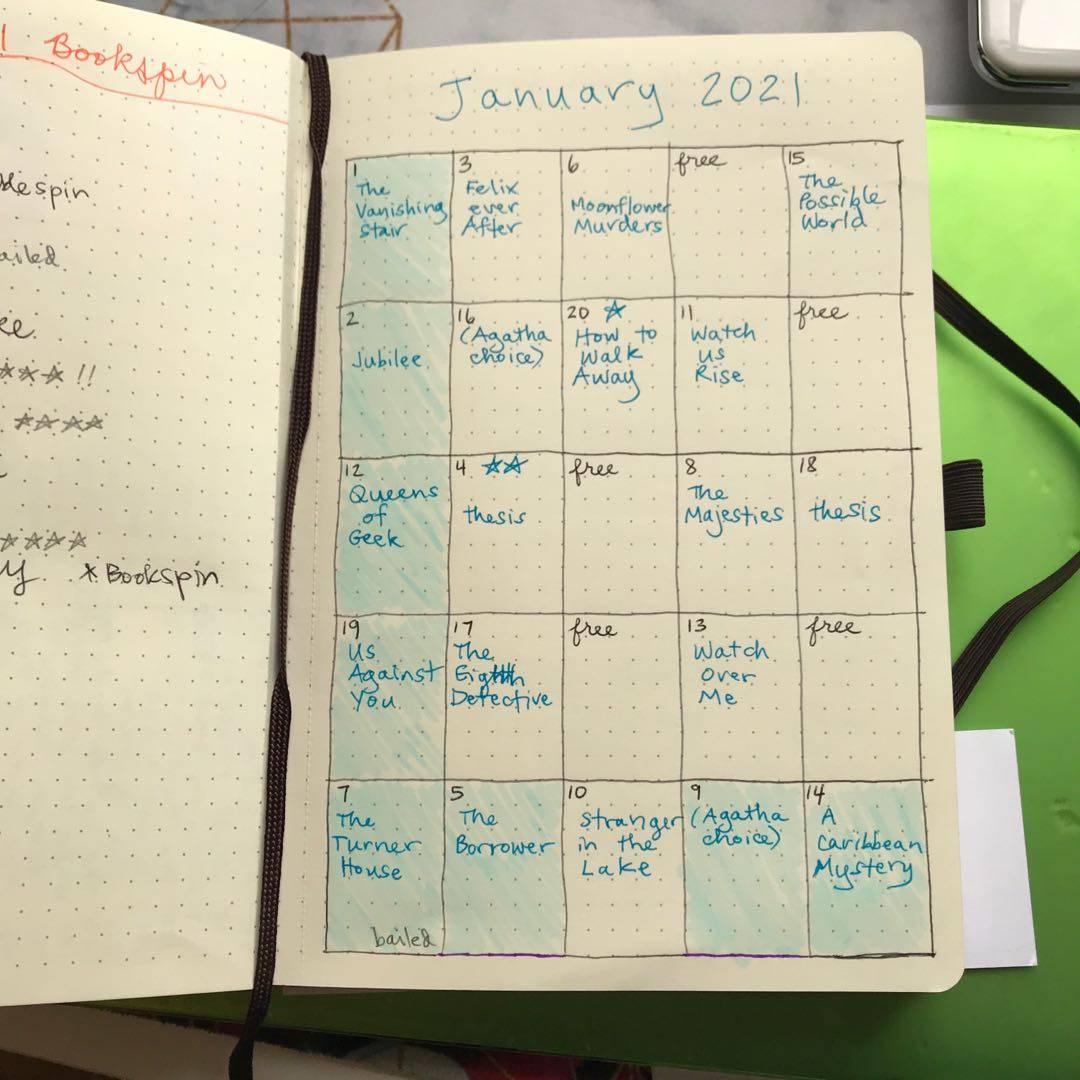 Bookspin
spin
!!
* Bookspin
January 2021
1
The
Vanishing
Stair
3
Felix
ever
After
6
Moonflower
Murders
free
15
The
Possible
World
2
Jubilee
16
(Agatha
choice)
20
How to
Walk
Away
11
Watch
us
Rise
free
12
Queens
of
Geek
4
thesis
free
8
The
Majesties
18
thesis
19
Us
Against
You
17
The
Eighth
Detective
free
13
Watch
Over
Me
free
7
The
Turner
House
bailed
5
The
Borrower
10
Stranger
in the
Lake
9
(Agatha
choice)
14
A
Caribbean
Mystery